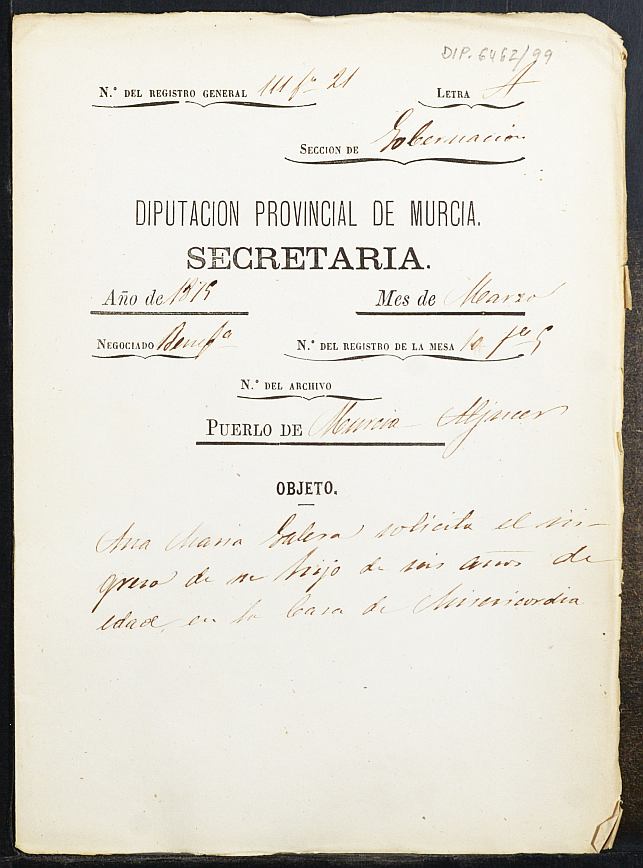 DIP. 6462/99
N.º DEL REGISTRO GENERAL 111 fº 21 LETRA A
SECCION DE Gobernacion
DIPUTACION PROVINCIAL DE MURCIA.
SECRETARIA.
Año de 1875 Mes de Marzo
NEGOCIADO Benefª N.º DEL REGISTRO DE LA MESA 10
N.º DEL ARCHIVO
PUERLO DE Murcia Aljucer
OBJETO.
Ana Maria solicita el in-
greso de su hijo de seis años de
edad, en la Casa de Misericordia